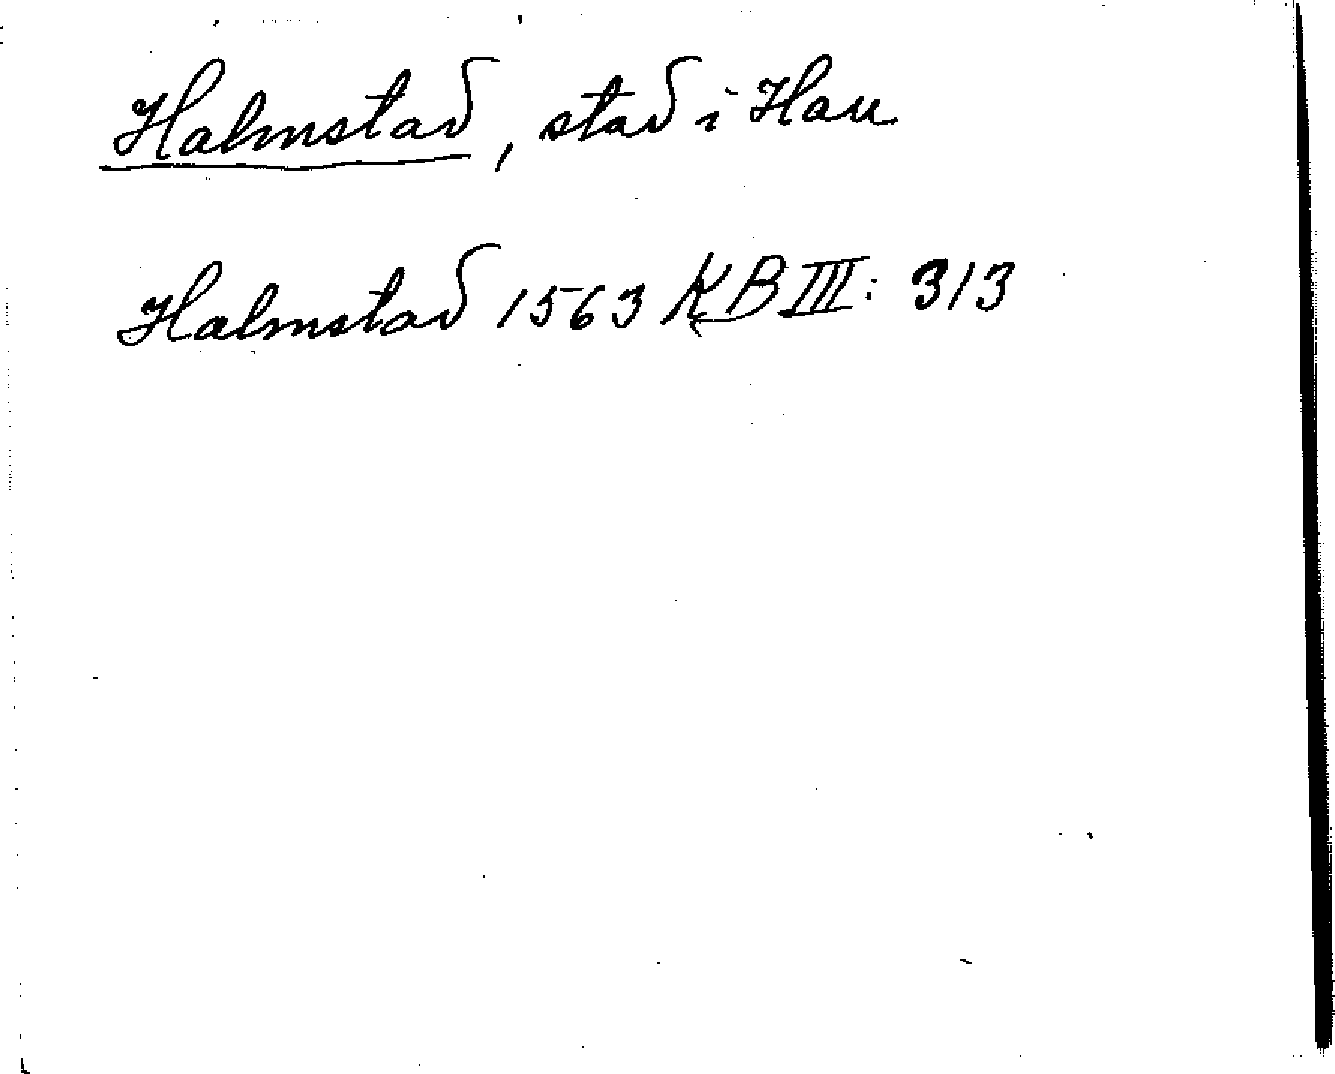 Halmstad, stad i Hall
Halmstad 1563 KB III: 313